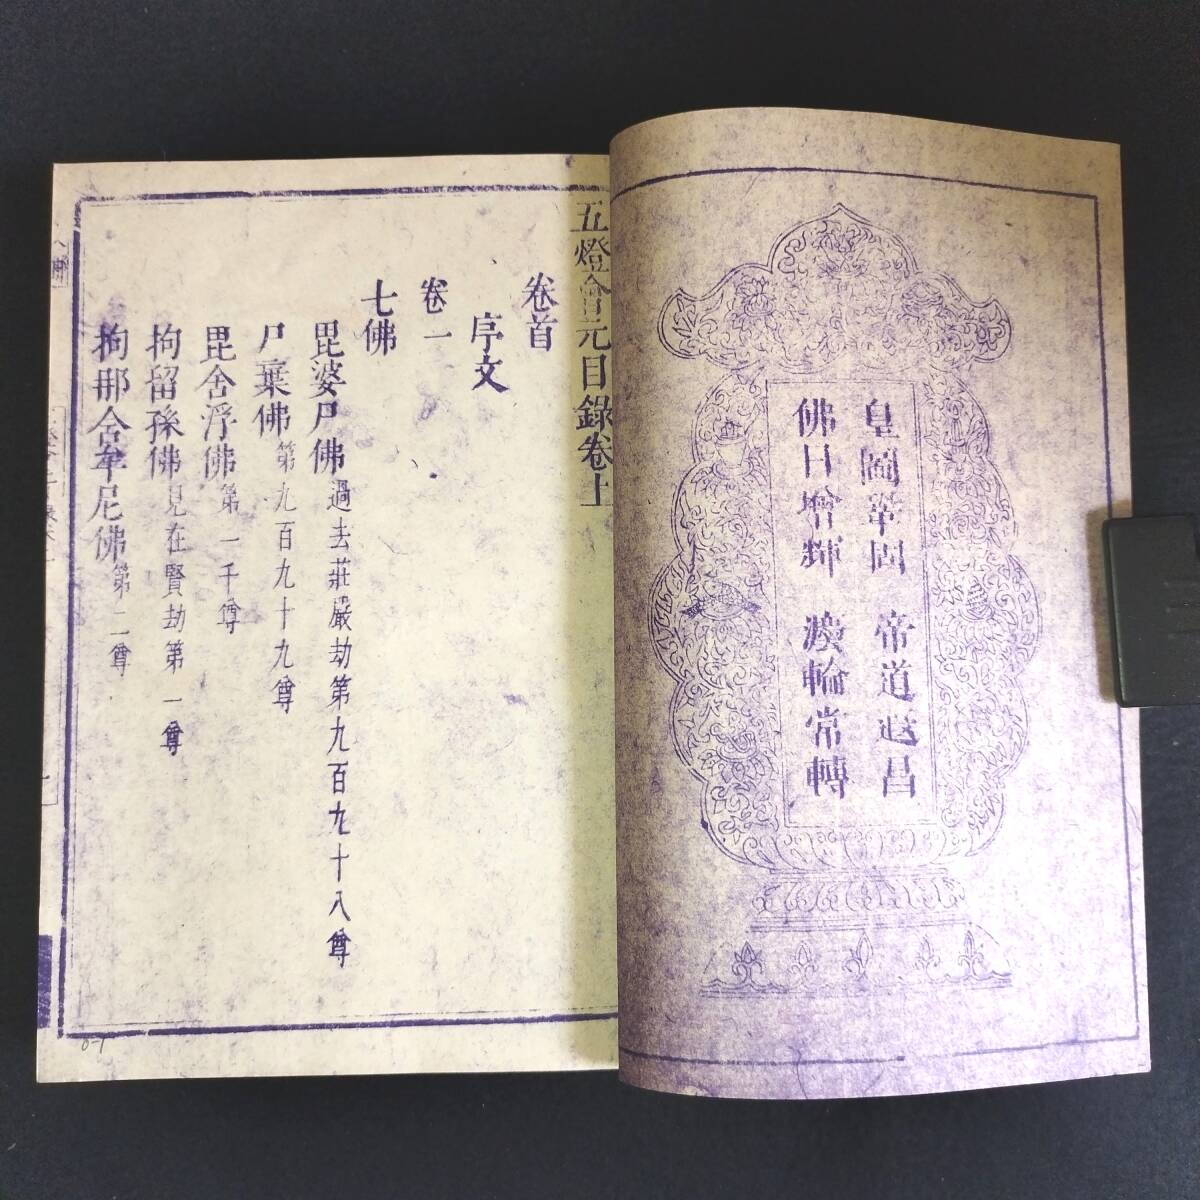 皇圖鞏固 帝道遐昌
佛日增輝 法輪常轉
五燈會元目錄卷上
卷首
序文
卷一
七佛
毘婆尸佛過去莊嚴劫第九百九十八尊
尸棄佛第九百九十九尊
毘舍浮佛第一千尊
拘留孫佛見在賢劫第一尊
拘那舍牟尼佛第二尊